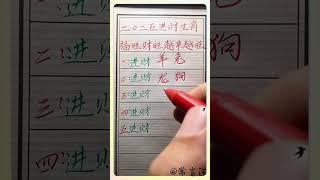 二〇二五进财生肖
福旺财旺越来越旺
一进财 羊兔
二进财 龙狗
三进财
四进财
五进财